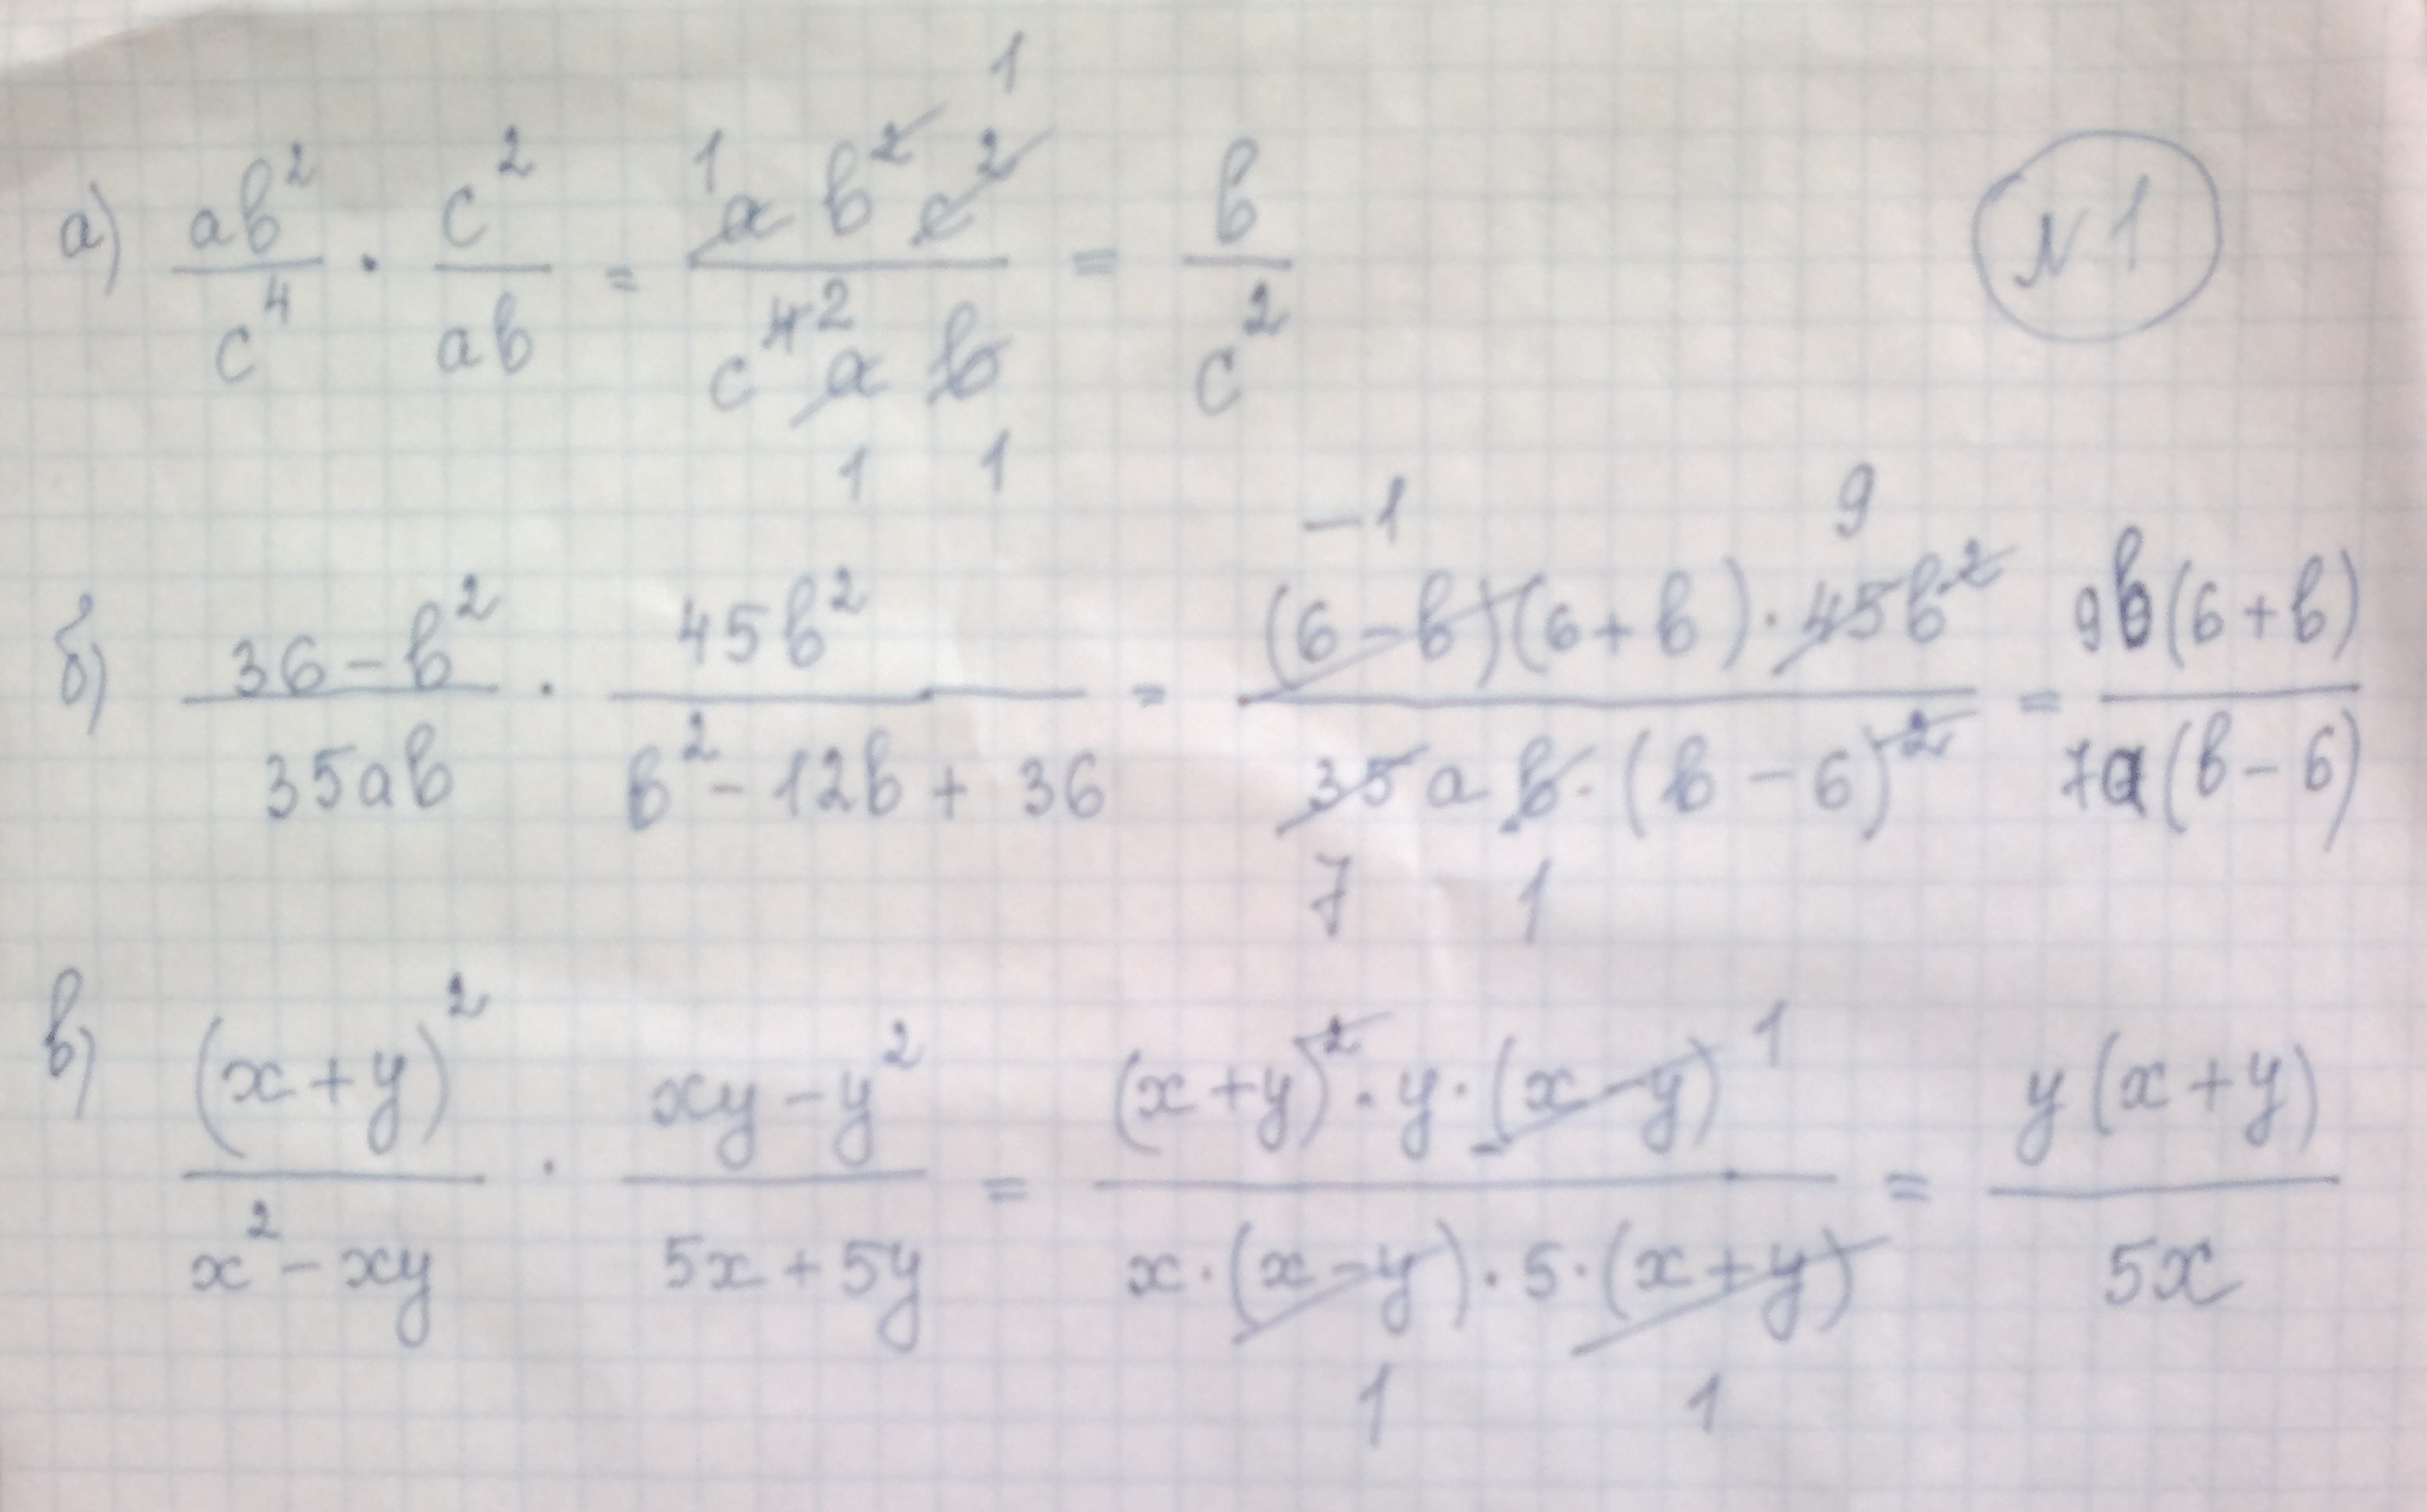 №1
а) ab²/c⁴ · c²/ab = ab²c²/c⁴ab = b/c²
б) 36-b²/35ab · 45b²/b²-12b+36 = (6-b)(6+b)·45b²/35ab·(b-6)² = 9b(6+b)/7a(b-6)
в) (x+y)²/x²-xy · xy-y²/5x+5y = (x+y)²·y·(x-y)/x·(x-y)·5·(x+y) = y(x+y)/5x